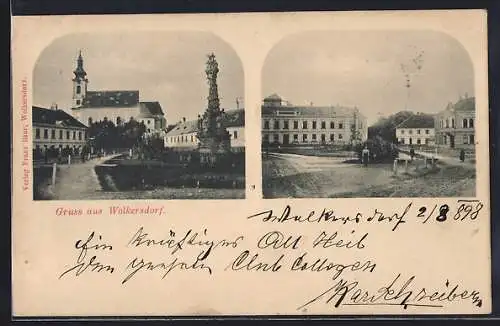 Verlag Franz Baur, Wolkersdorf.
Gruss aus Wolkersdorf.
Wolkersdorf 2/8 898
Ein kräftiges "All Heil"
den Club Collegen
Karl Schreiber